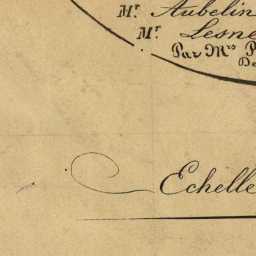 Mr. Aubelin
Mr. Lesne
Par Mrs P
De
Echelle